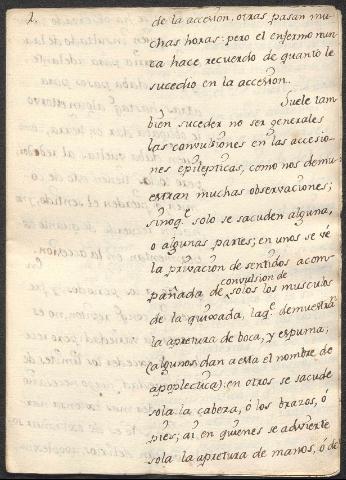 2.
de la accesion, otras pasan mu-
chas horas: pero el enfermo nun-
ca hace recuerdo de quanto le
sucedio en la accesion.
Suele tam-
bien suceder no ser generales
las convulsiones en las accesio-
nes epilepticas, como nos demu-
extran muchas observaciones;
sinoq.e solo se sacuden alguna,
o algunas partes; en unos se vé
la privacion de sentidos acom-
convulsion de
pañada de solos los musculos
de la quixada, laq.e demuestra
la apretura de boca, y espuma;
(algunos dan a esta el nombre de
apoplectica): en otros se sacude
sola la cabeza, ó los brazos, ó
pies; ai en quienes se advierte
sola la apretura de manos, ó de